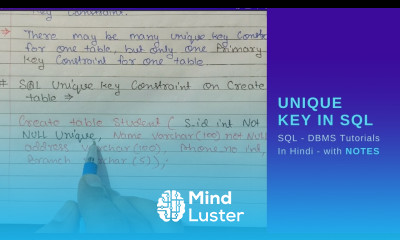 Key Constraint.
There may be many unique key Constr
for one table, but only one Primary
Key Constraint for one table
SQL Unique Key Constraint on Create
table ⇒
Create table Student ( S.id int Not
NULL Unique, Name varchar(100) not NULL
address varchar(100), Phone_no int,
Branch varchar (5));
UNIQUE
KEY IN SQL
SQL - DBMS Tutorials
In Hindi - with NOTES
Mind
Luster